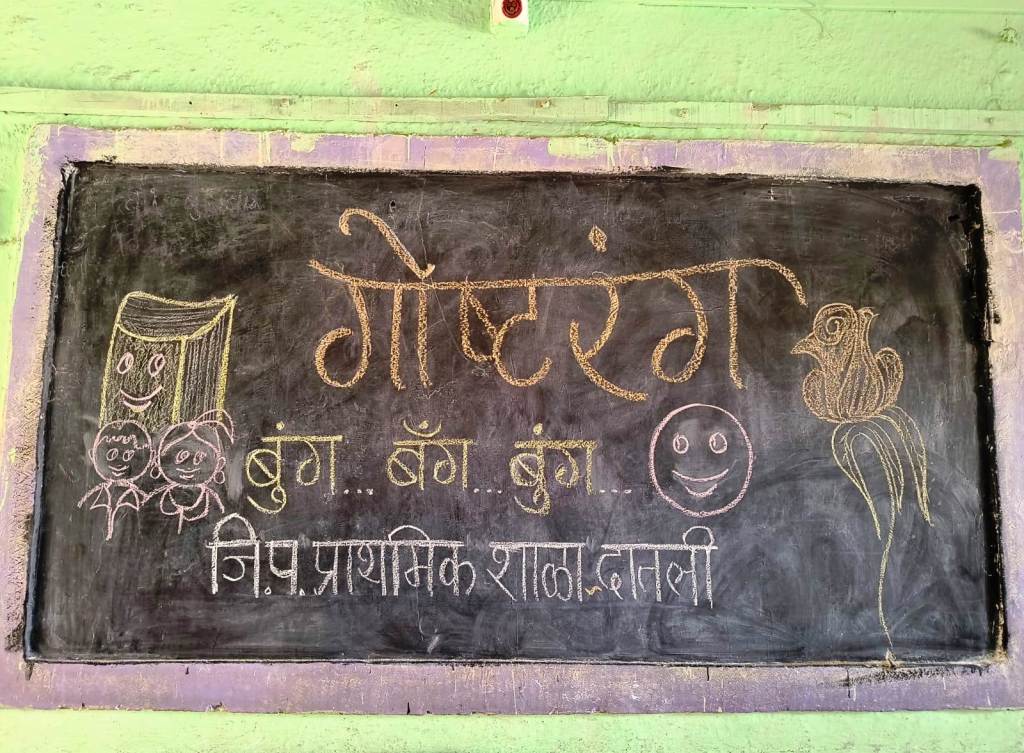 गोष्टरंग
बुंग... बँग... बुंग...
जि.प. प्राथमिक शाळा दातली